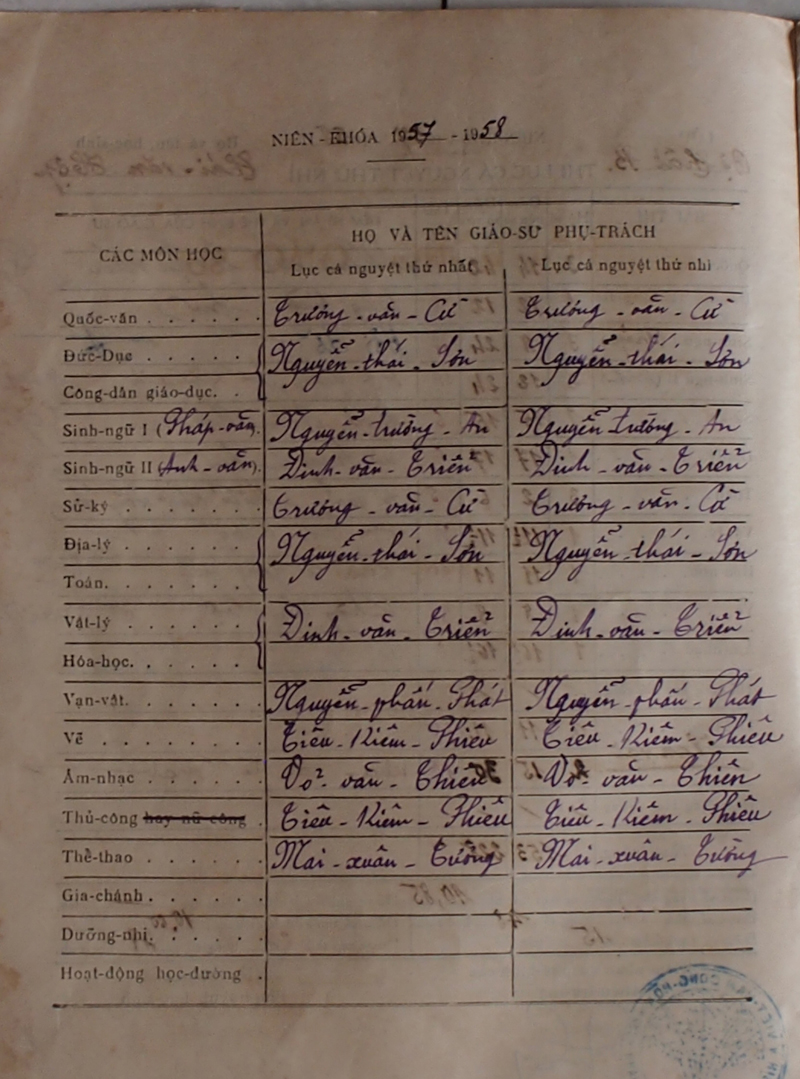 NIÊN-KHÓA 1957 - 1958
CÁC MÔN HỌC
HỌ VÀ TÊN GIÁO-SƯ PHỤ-TRÁCH
Lục cá nguyệt thứ nhất Lục cá nguyệt thứ nhì
Quốc-văn . . . . . . Trương-văn-Cử Trương-văn-Cử
Đức-Dục . . . . . . Nguyễn-thái-Sơn Nguyễn-thái-Sơn
Công-dân giáo-dục. .
Sinh-ngữ I (Pháp-văn). Nguyễn-trường-An Nguyễn trường-An
Sinh-ngữ II (Anh-văn). Đinh-văn-Triển Đinh-văn-Triển
Sử-ký . . . . . . Trương-văn-Cử Trương-văn-Cử
Địa-lý . . . . . . Nguyễn-thái-Sơn Nguyễn thái-Sơn
Toán. . . . . . .
Vật-lý . . . . . . Đinh-văn-Triển Đinh-văn-Triển
Hóa-học. . . . . .
Vạn-vật. . . . . . Nguyễn-phấn-Phát Nguyễn-phấn-Phát
Vẽ . . . . . . . . Tiêu-Kiêm-Phiêu Tiêu-Kiêm-Phiêu
Âm-nhạc . . . . . Võ-văn-Thiên Võ-văn-Thiên
Thủ-công hay nữ công . Tiêu-Kiêm-Phiêu Tiêu-Kiêm-Phiêu
Thể-thao . . . . . Mai-xuân-Tường Mai-xuân-Tường
Gia-chánh . . . . .
Dưỡng-nhi. . . . . .
Hoạt-động học-đường .